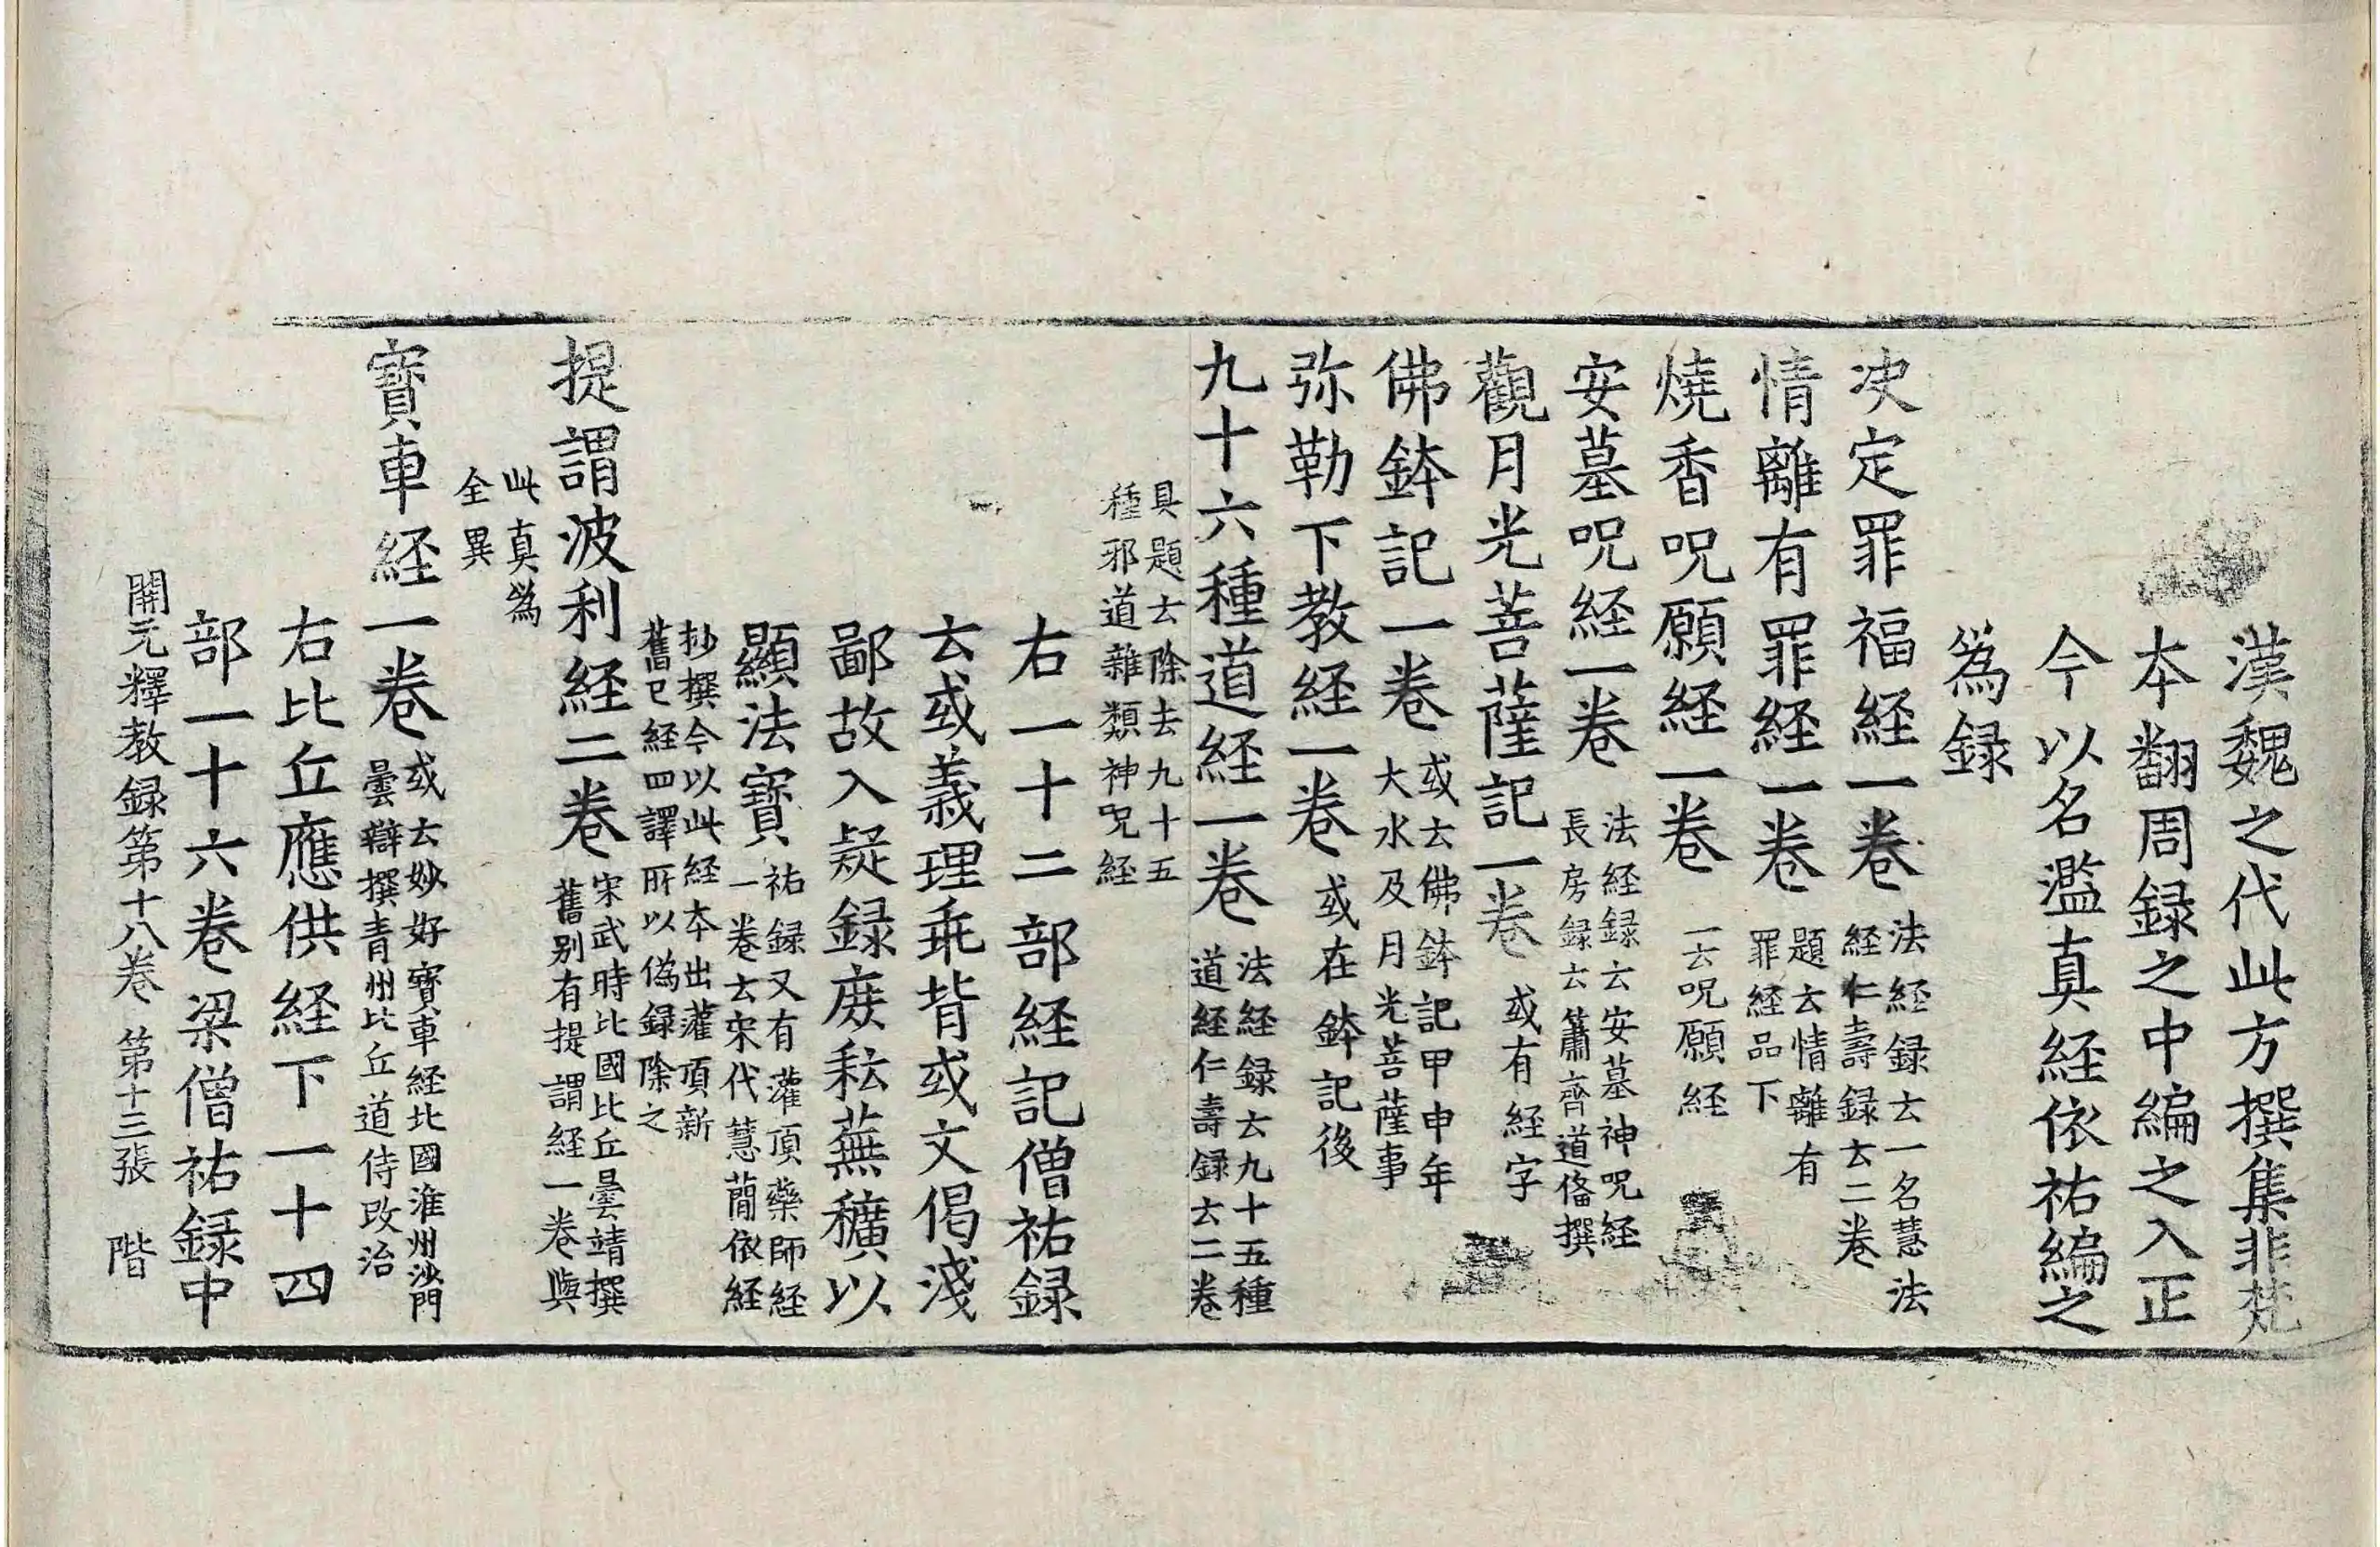 漢魏之代此方撰集非梵
本翻周録之中編之入正
今以名濫真経依祐編之
為録
决定罪福経一卷法経録云一名慧法
経仁壽録云二卷
情離有罪経一卷題云情離有
罪経品下
燒香呪願経一卷一云呪願経
安墓呪経一卷法経録云安墓神呪経
長房録云蕭齊道偹撰
觀月光菩薩記一卷或有経字
佛鉢記一卷或云佛鉢記甲申年
大水及月光菩薩事
弥勒下教経一卷或在鉢記後
九十六種道経一卷法経録云九十五種
道経仁壽録云二卷
具題云除去九十五
種邪道雜類神呪経
右一十二部経記僧祐録
云或義理乖背或文偈淺
鄙故入疑録庻耘蕪穬以
顯法寶祐録又有灌頂藥師経
一卷云宋代慧蕳依経
抄撰今以此経本出灌頂新
舊已経四譯所以偽録除之
提謂波利経二卷宋武時比國比丘曇靖撰
舊别有提謂経一卷與
此真為
全異
寳車経一卷或云妙好寳車経北國淮州沙門
曇辯撰青州比丘道侍改治
右比丘應供経下一十四
部一十六卷梁僧祐録中
開元釋教録第十八卷 第十三張 階